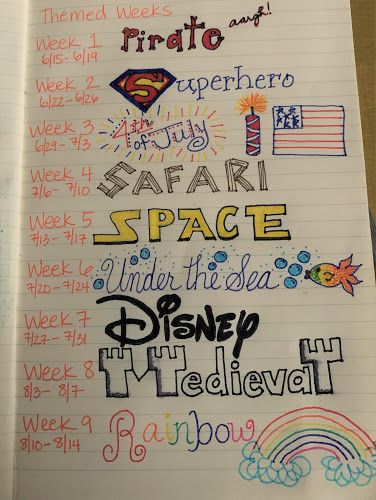 Themed Weeks
Week 1 Pirate aargh!
6/15-6/19
Week 2 Superhero
6/22-6/26
Week 3 4th of July
6/29-7/3
Week 4 SAFARI
7/6-7/10
Week 5 SPACE
7/13-7/17
Week 6 Under the Sea
7/20-7/24
Week 7 Disney
7/27-7/31
Week 8 Medieval
8/3-8/7
Week 9 Rainbow
8/10-8/14